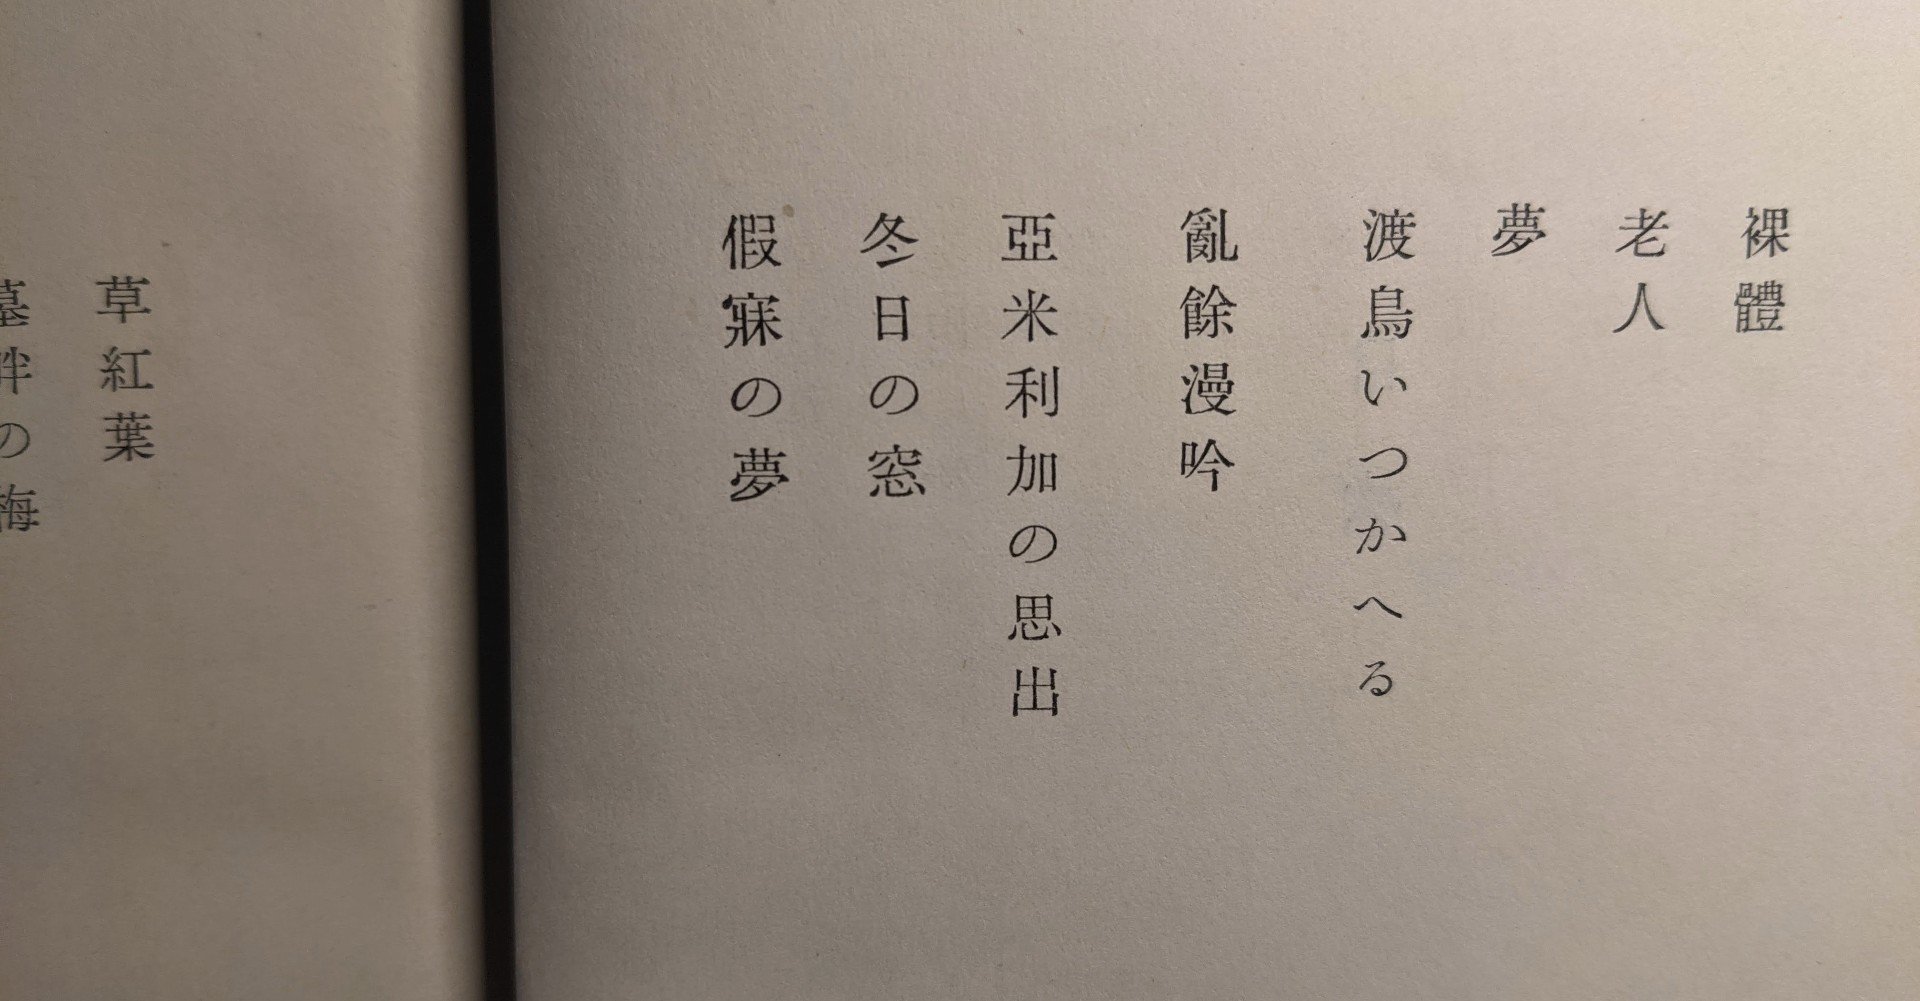 裸體
老人
夢
渡鳥いつかへる
亂餘漫吟
亞米利加の思出
冬日の窓
假寐の夢
草紅葉
墓畔の梅